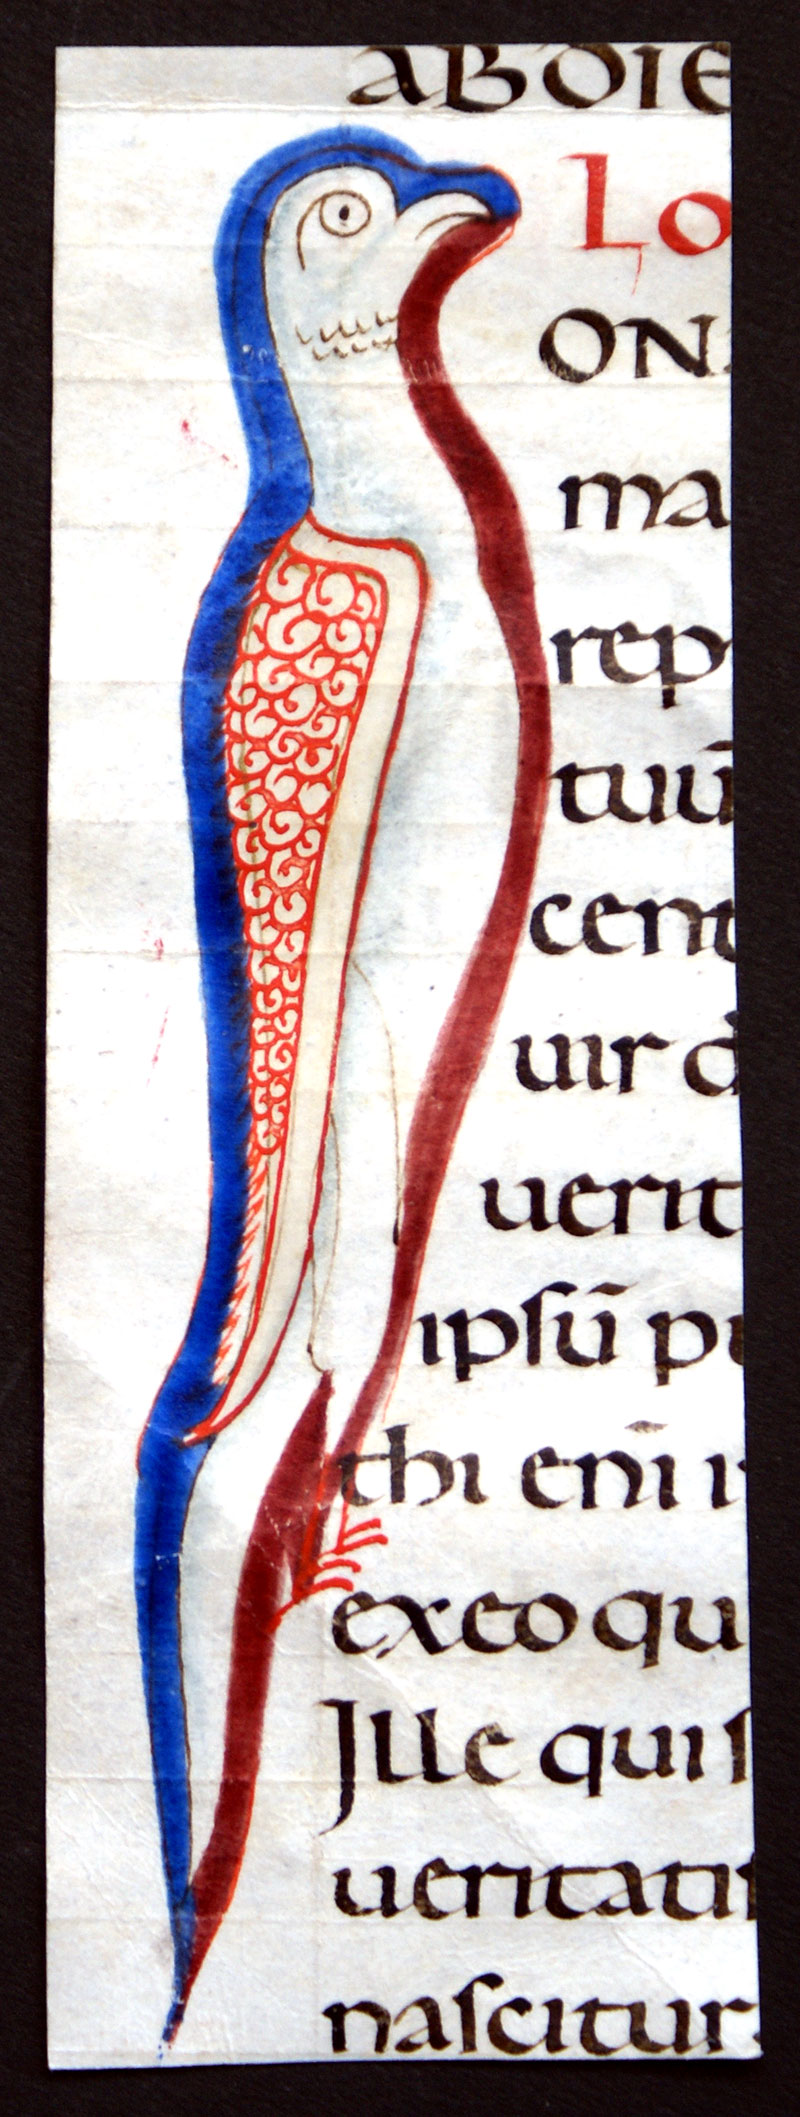 AB DIE
Lo
ON
ma
rep
tuū
cent
uir d
uerit
ipsū p
thi enī i
ex eo qu
Ille qui s
ueritatis
nascitur.